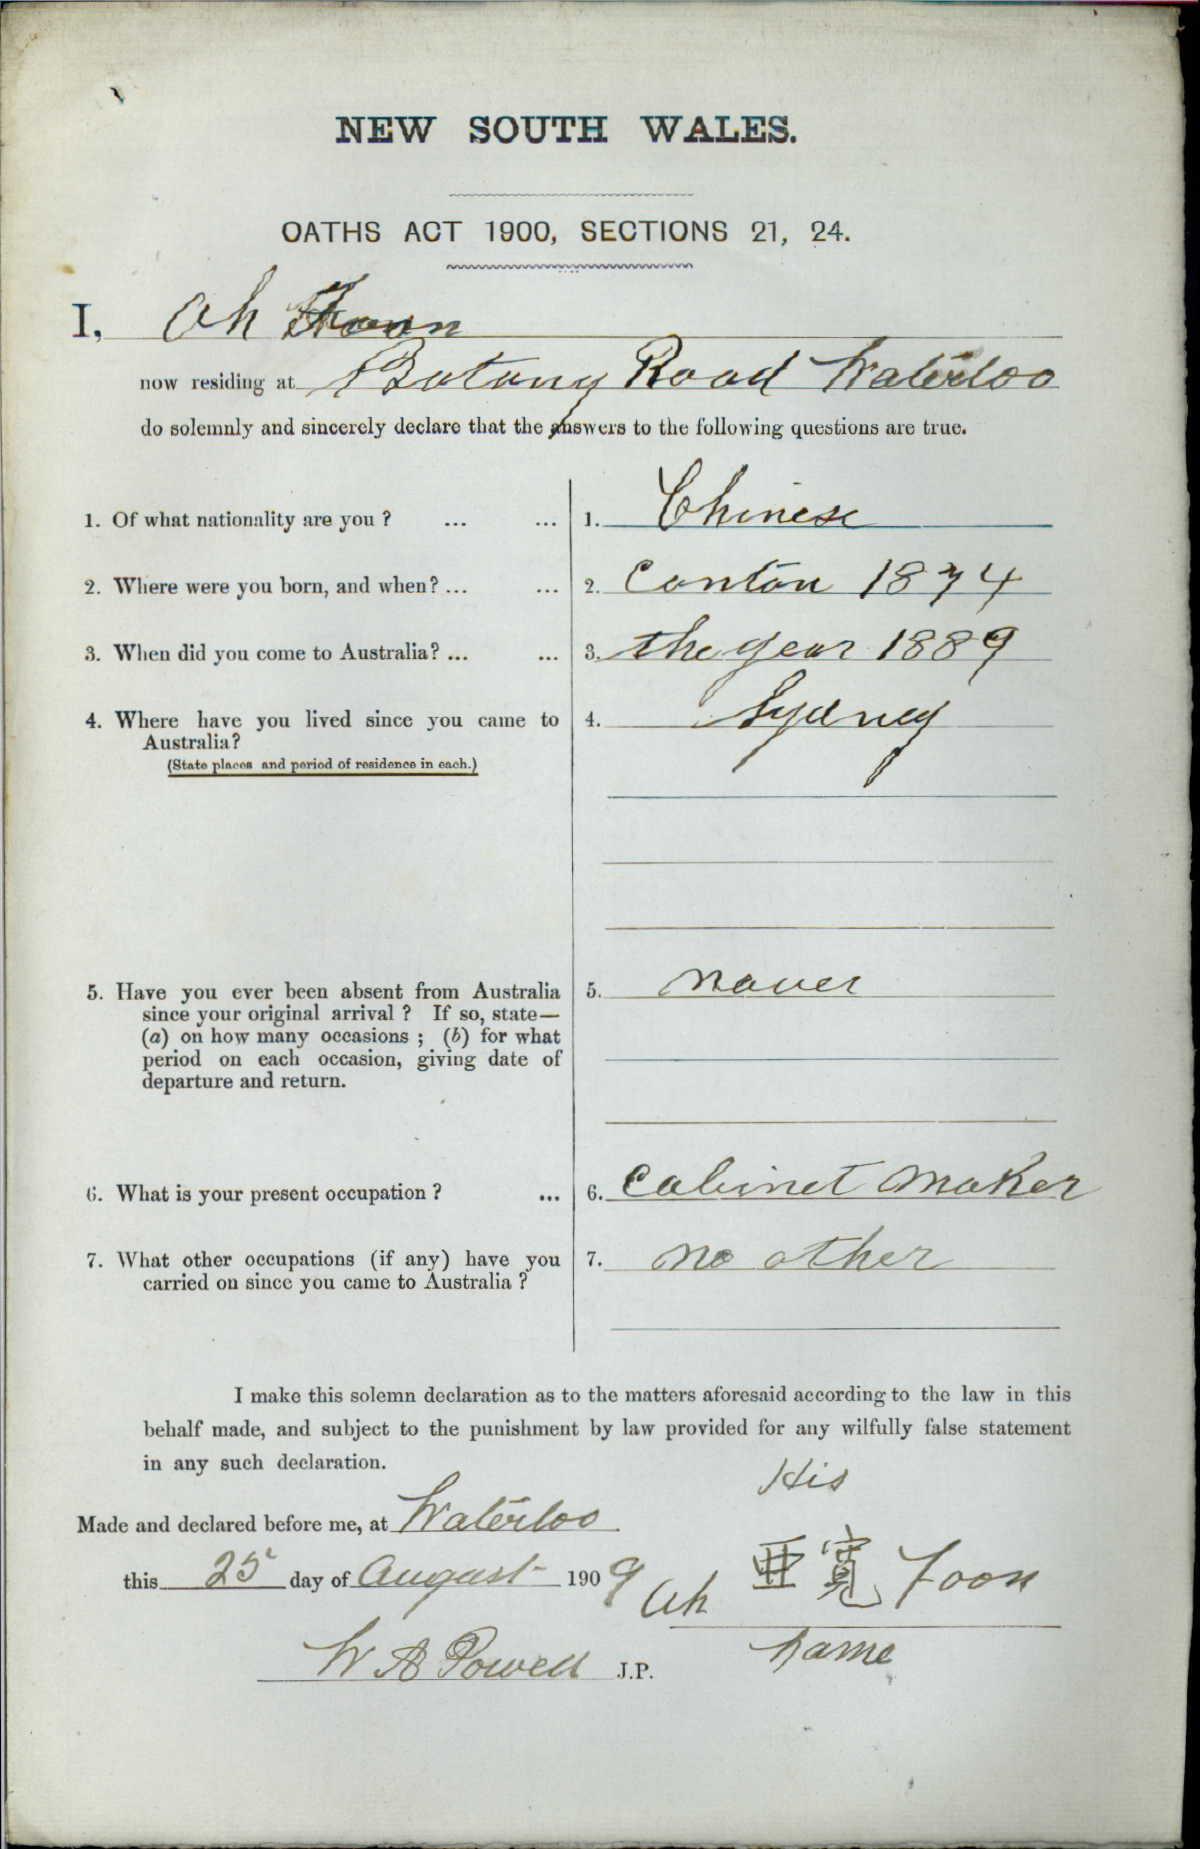 NEW SOUTH WALES.
OATHS ACT 1900, SECTIONS 21, 24.
I, Ah Foon
now residing at Botany Road Waterloo
do solemnly and sincerely declare that the answers to the following questions are true.
1. Of what nationality are you ? ... ... 1. Chinese
2. Where were you born, and when? ... ... 2. Canton 1874
3. When did you come to Australia? ... ... 3. the year 1889
4. Where have you lived since you came to 4. Sydney
Australia?
(State places and period of residence in each.)
5. Have you ever been absent from Australia 5. Naver
since your original arrival ? If so, state—
(a) on how many occasions ; (b) for what
period on each occasion, giving date of
departure and return.
6. What is your present occupation ? ... 6. Cabinet Maker
7. What other occupations (if any) have you 7. No other
carried on since you came to Australia ?
I make this solemn declaration as to the matters aforesaid according to the law in this
behalf made, and subject to the punishment by law provided for any wilfully false statement
in any such declaration.
His
Made and declared before me, at Waterloo
this 25 day of August 1909 Ah 亜寬 Foon
name
W A Powell J.P.